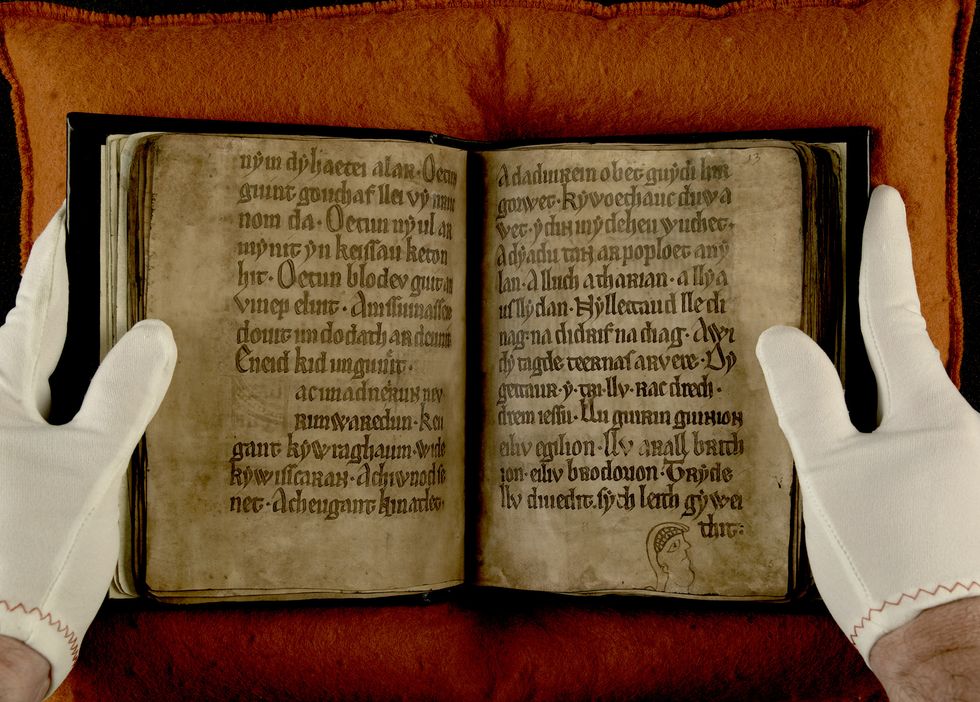 nym dyhaetei alar. Oetun
giunt gouchaf llei vy
nom da. Oetun vy ul ar
mynit yn keissau keton
hit. Oetun blodev guit ar
vinep elint. Amssinnasseu
douit im do dath ar
Eneid kid im gunit.
ac im a dnerun
runwaredun. kei
gant kywraghaun. wide
kywisscaran. Achivnod se
net. Acheugant kinatlet.
13
A daduirein o bet guydi hir
gorwet. kywoethauc duw a
vet. y din my deheu wuchet.
A dyadu tan ar poploet aný
lan. A lluch a tharian. a llý a
us llydan. Ný llettaud lle di
nag. na didrif na diag. A wi
dý tagde teernas a rvere. Dý
gettaur. ý. tri llv. rac drech.
drem iessu. Llu guirin guinion
eiliv egilion. Llv arall brith
ion eiliv brodorion. Trýde
llv diuedit. sých leith gý wei
thit.